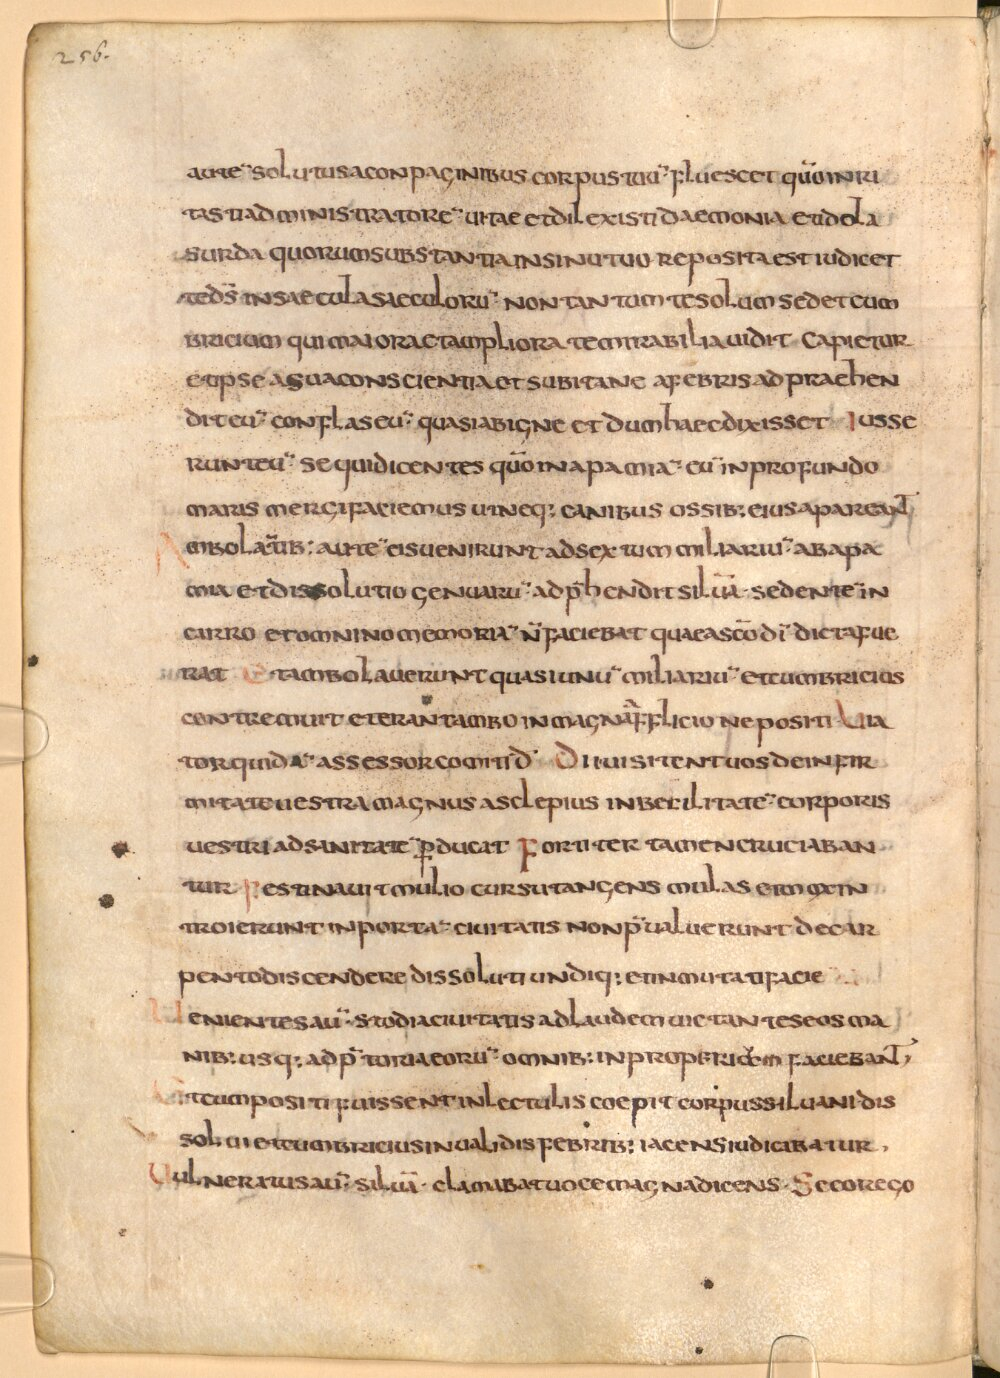 256.
aute¨ solutus a conpaginibus corpus tuu¨ fluescet quo¨ inri
tasti administratore¨ uitae et dilexisti daemonia et idola
surda quorum substantia in sinu tuo reposita est iudicet
te ds̄ in saecula saeculoru¨ non tantum te solum sed et cum
bricium qui maiora et ampliora te mirabilia uidit capietur
et ipse a sua conscientia et subitane a febris adpraehen
dit eu¨ conflas eu¨ quasi ab igne et dum haec dixisset Iusse
runt eu¨ sequi dicentes quo¨ in apamia¨ eu¨ in profundo
maris mergi faciemus ut neq: canibus ossib: eius apareant
Ambolatib: aute¨ eis uenirunt ad sextum miliariu¨ ab apa
mia et dissolutio genuaru¨ adp̄hendit siluā sedente¨ in
carro et omnino memoria¨ n̄ faciebat quae a sc̄o di¨ dicta fue
rat Et ambolauerunt quasi unu¨ miliariu¨ et cum bricius
contremuit et erant ambo in magna fflicio ne positi Uia
tor quida¨ assessor comiti d¨ Dii uisitent uos de infir
mitate uestra magnus asclepius inbecilitate¨ corporis
uestri ad sanitate¨ p̱ducat Fortiter tamen cruciaban
tur Festinauit mulio cursu tangens mulas et mox in
troierunt in porta¨ ciuitatis non p̄ualuerunt de car
pento discendere dissoluti undiq: et inmutati facie
Uenientes au¨ stodia ciuitatis ad laudem uictantes eos ma
nib: usq: ad p̄toria eoru¨ omnib: in properium faciebant,
Et cum positi fuissent in lectulis coepit corpus siluani dis
solui et cum bricius in ualidis febrib: iacens iudicibatur,
Uulneratus au¨ siluā clamabat uoce magna dicens Secorego